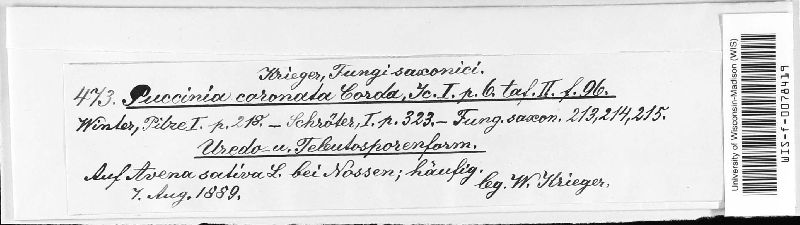 Krieger, Fungi saxonici.
473. Puccinia coronata Corda, Ic. I. p. 6. taf. II. f. 96.
Winter, Pilze I. p. 218. – Schröter, I. p. 323. – Fung. saxon. 213, 214, 215.
Uredo- u. Teleutosporenform.
Auf Avena sativa L. bei Nossen; häufig.
7. Aug. 1889.
lg. W. Krieger.
University of Wisconsin-Madison (WIS)
WIS-f-0078419